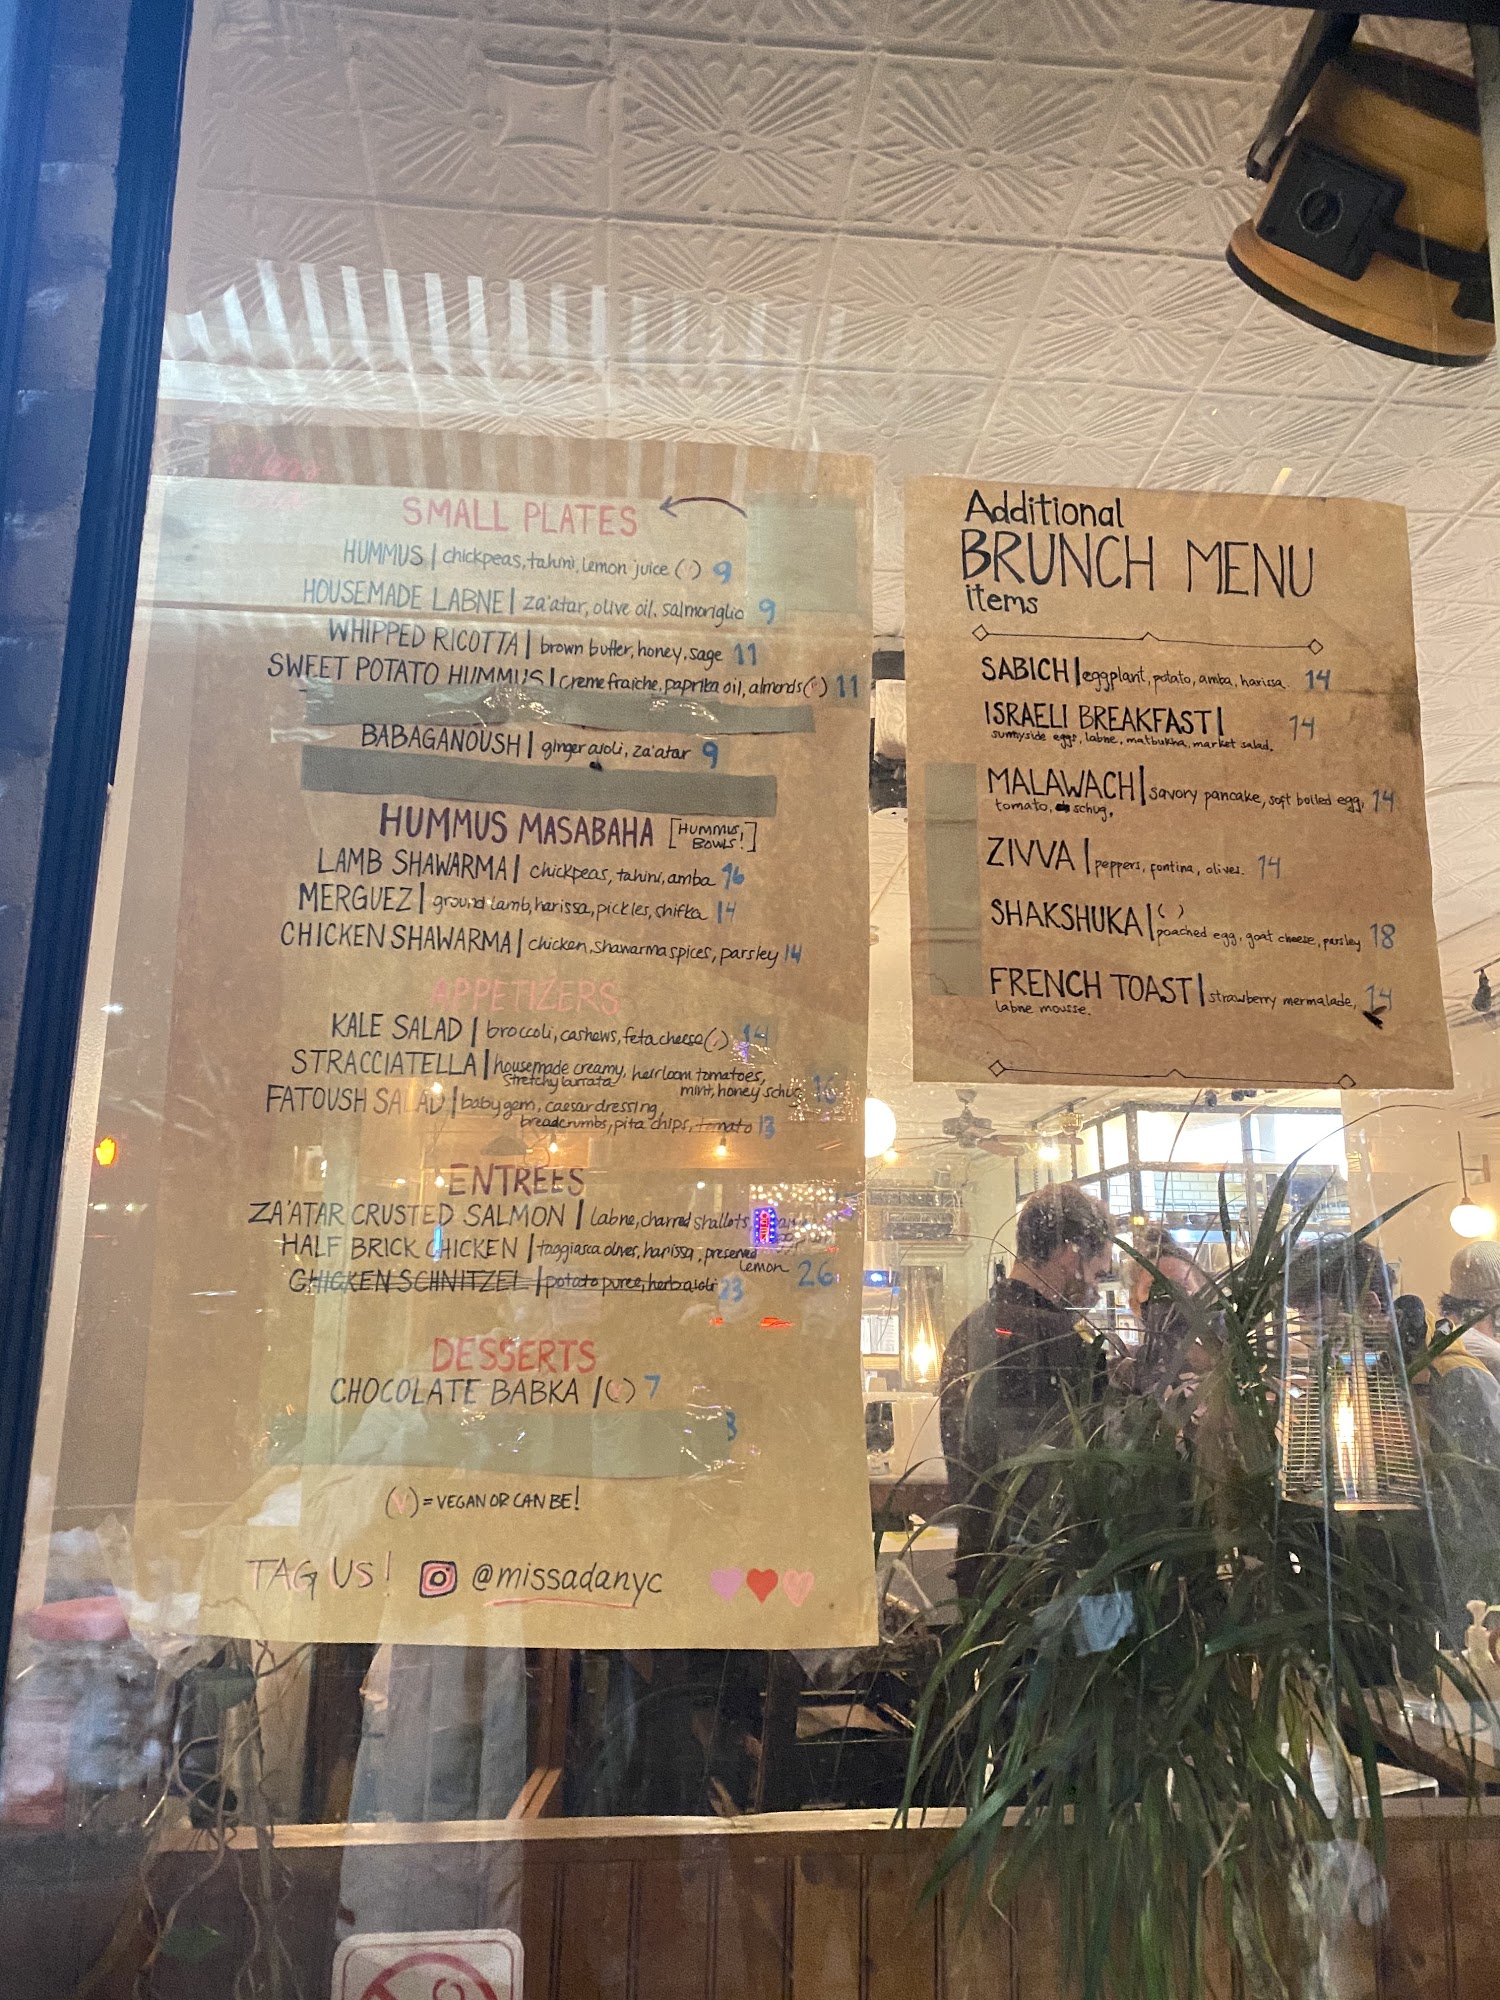 SMALL PLATES
HUMMUS | chickpeas, tahini, lemon juice ( ) 9
HOUSEMADE LABNE | za'atar, olive oil, salmoriglio 9
WHIPPED RICOTTA | brown butter, honey, sage 11
SWEET POTATO HUMMUS | creme fraiche, paprika oil, almonds (v) 11
BABAGANOUSH | ginger aioli, za'atar 9
HUMMUS MASABAHA [HUMMUS
BOWLS!]
LAMB SHAWARMA | chickpeas, tahini, amba 16
MERGUEZ | ground lamb, harissa, pickles, shifka 14
CHICKEN SHAWARMA | chicken, shawarma spices, parsley 14
APPETIZERS
KALE SALAD | broccoli, cashews, feta cheese (v) 14
STRACCIATELLA | housemade creamy, heirloom tomatoes,
stretchy burrata mint, honey schug 16
FATOUSH SALAD | baby gem, caesar dressing,
breadcrumbs, pita chips, tomato 13
ENTREES
ZA'ATAR CRUSTED SALMON | labne, charred shallots,
HALF BRICK CHICKEN | taggiasca olives, harissa, preserved
lemon 26
CHICKEN SCHNITZEL | potato puree, herb aioli 23
DESSERTS
CHOCOLATE BABKA | (v) 7
(V) = VEGAN OR CAN BE!
TAG US! @missadanyc
Additional
BRUNCH MENU
items
SABICH | eggplant, potato, amba, harissa. 14
ISRAELI BREAKFAST | 14
sunnyside eggs, labne, matbukha, market salad.
MALAWACH | savory pancake, soft boiled egg, 14
tomato, schug.
ZIVVA | peppers, fontina, olives. 14
SHAKSHUKA | ( )
poached egg, goat cheese, parsley 18
FRENCH TOAST | strawberry mermalade, 14
labne mousse.